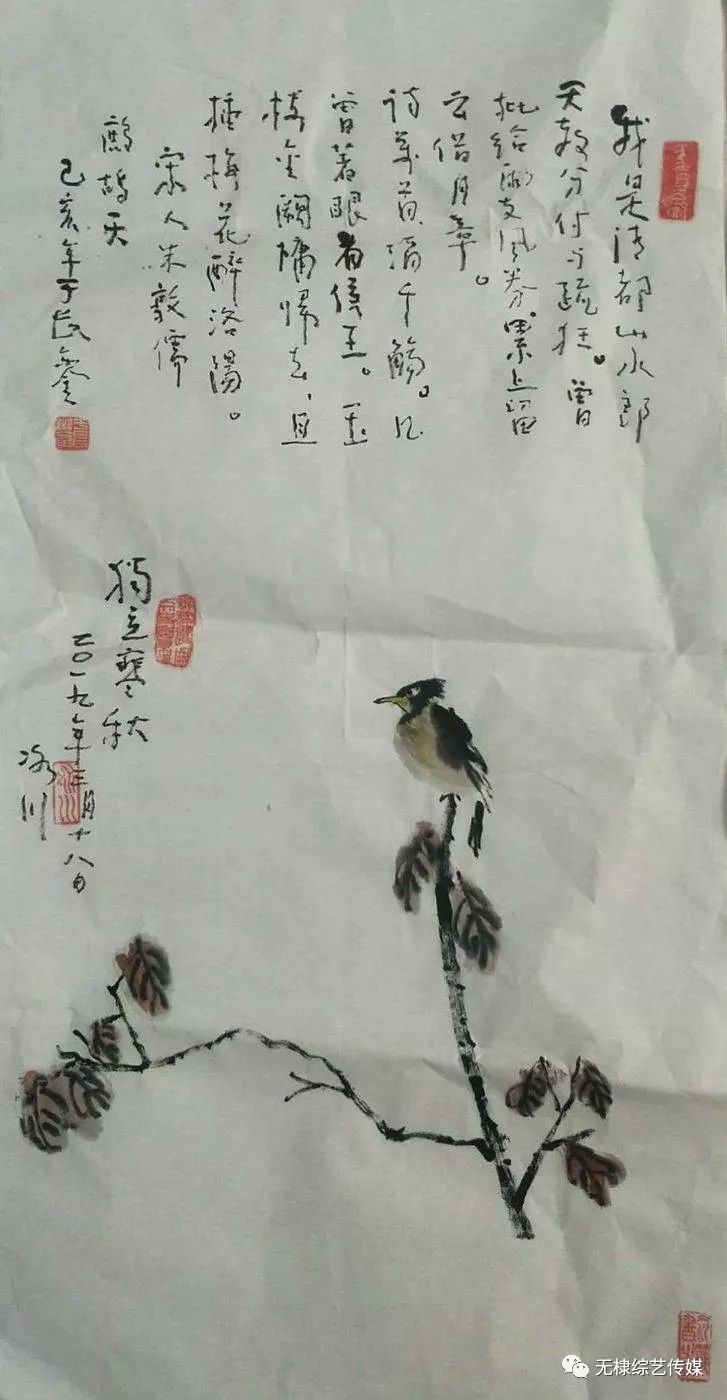 我是清都山水郎
天教分付与疏狂。曾
批给雨支风券、累上留
云借月章。
诗萬首酒千觞。几
曾著眼看侯王。玉
楼金闕慵帰去、且
插梅花醉洛陽。
宋人朱敦儒
鹧鸪天
己亥年于長
獨立寒秋
二〇一九年三月十八日
无棣综艺传媒